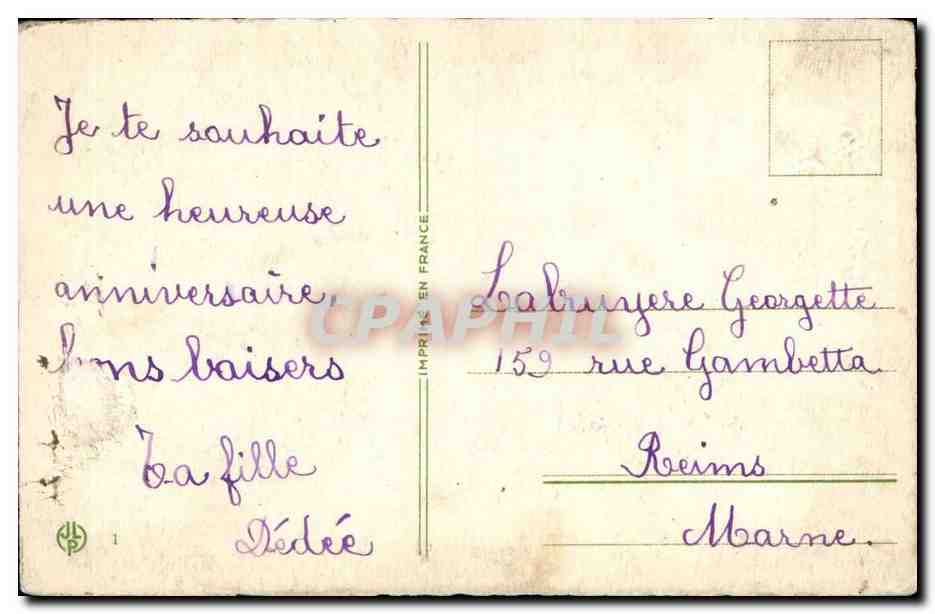 Je te souhaite
une heureuse
anniversaire,
bons baisers
Ta fille
Dédée
JLP
1
IMPRIMÉ EN FRANCE
CPAPHIL
Labruyere Georgette
159 rue Gambetta
Reims
Marne.